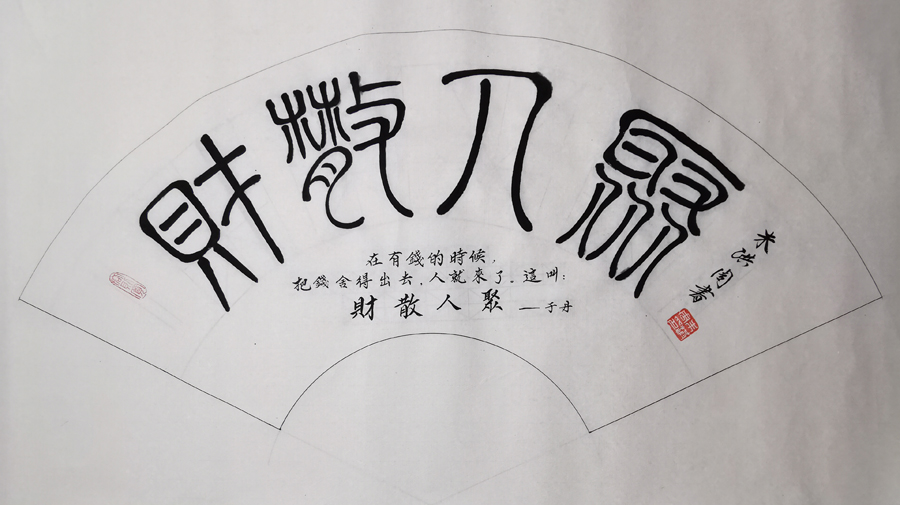 財散人聚
在有錢的時候，
把錢舍得出去，人就來了。這叫：
財散人聚 —于丹
朱洪閏書